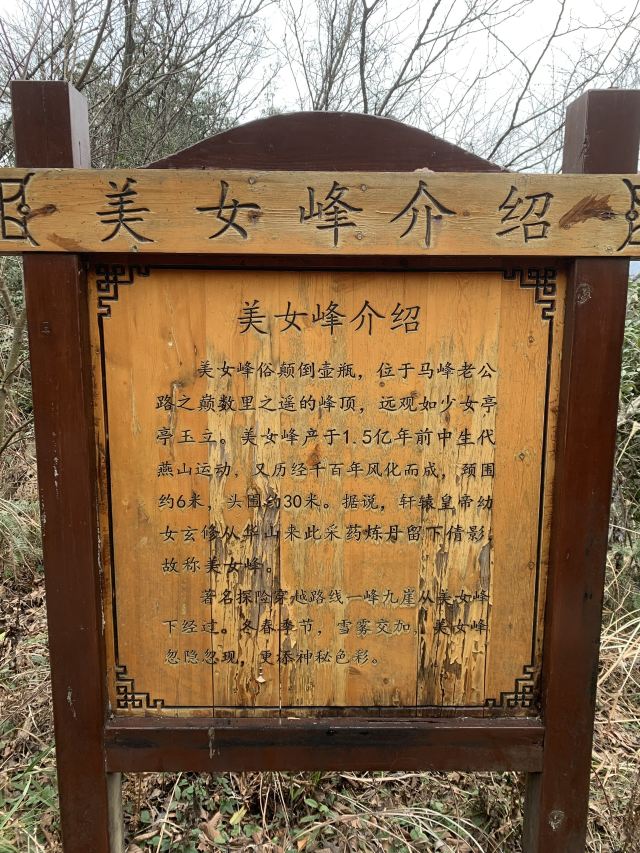 美女峰介绍
美女峰介绍
美女峰俗颠倒壶瓶，位于马峰老公
路之巅数里之遥的峰顶，远观如少女亭
亭玉立。美女峰产于1.5亿年前中生代
燕山运动，又历经千百年风化而成，颈围
约6米，头围约30米。据说，轩辕皇帝幼
女玄修从华山来此采药炼丹留下倩影，
故称美女峰。
著名探险穿越路线一峰九崖从美女峰
下经过。冬春季节，雪雾交加，美女峰
忽隐忽现，更添神秘色彩。